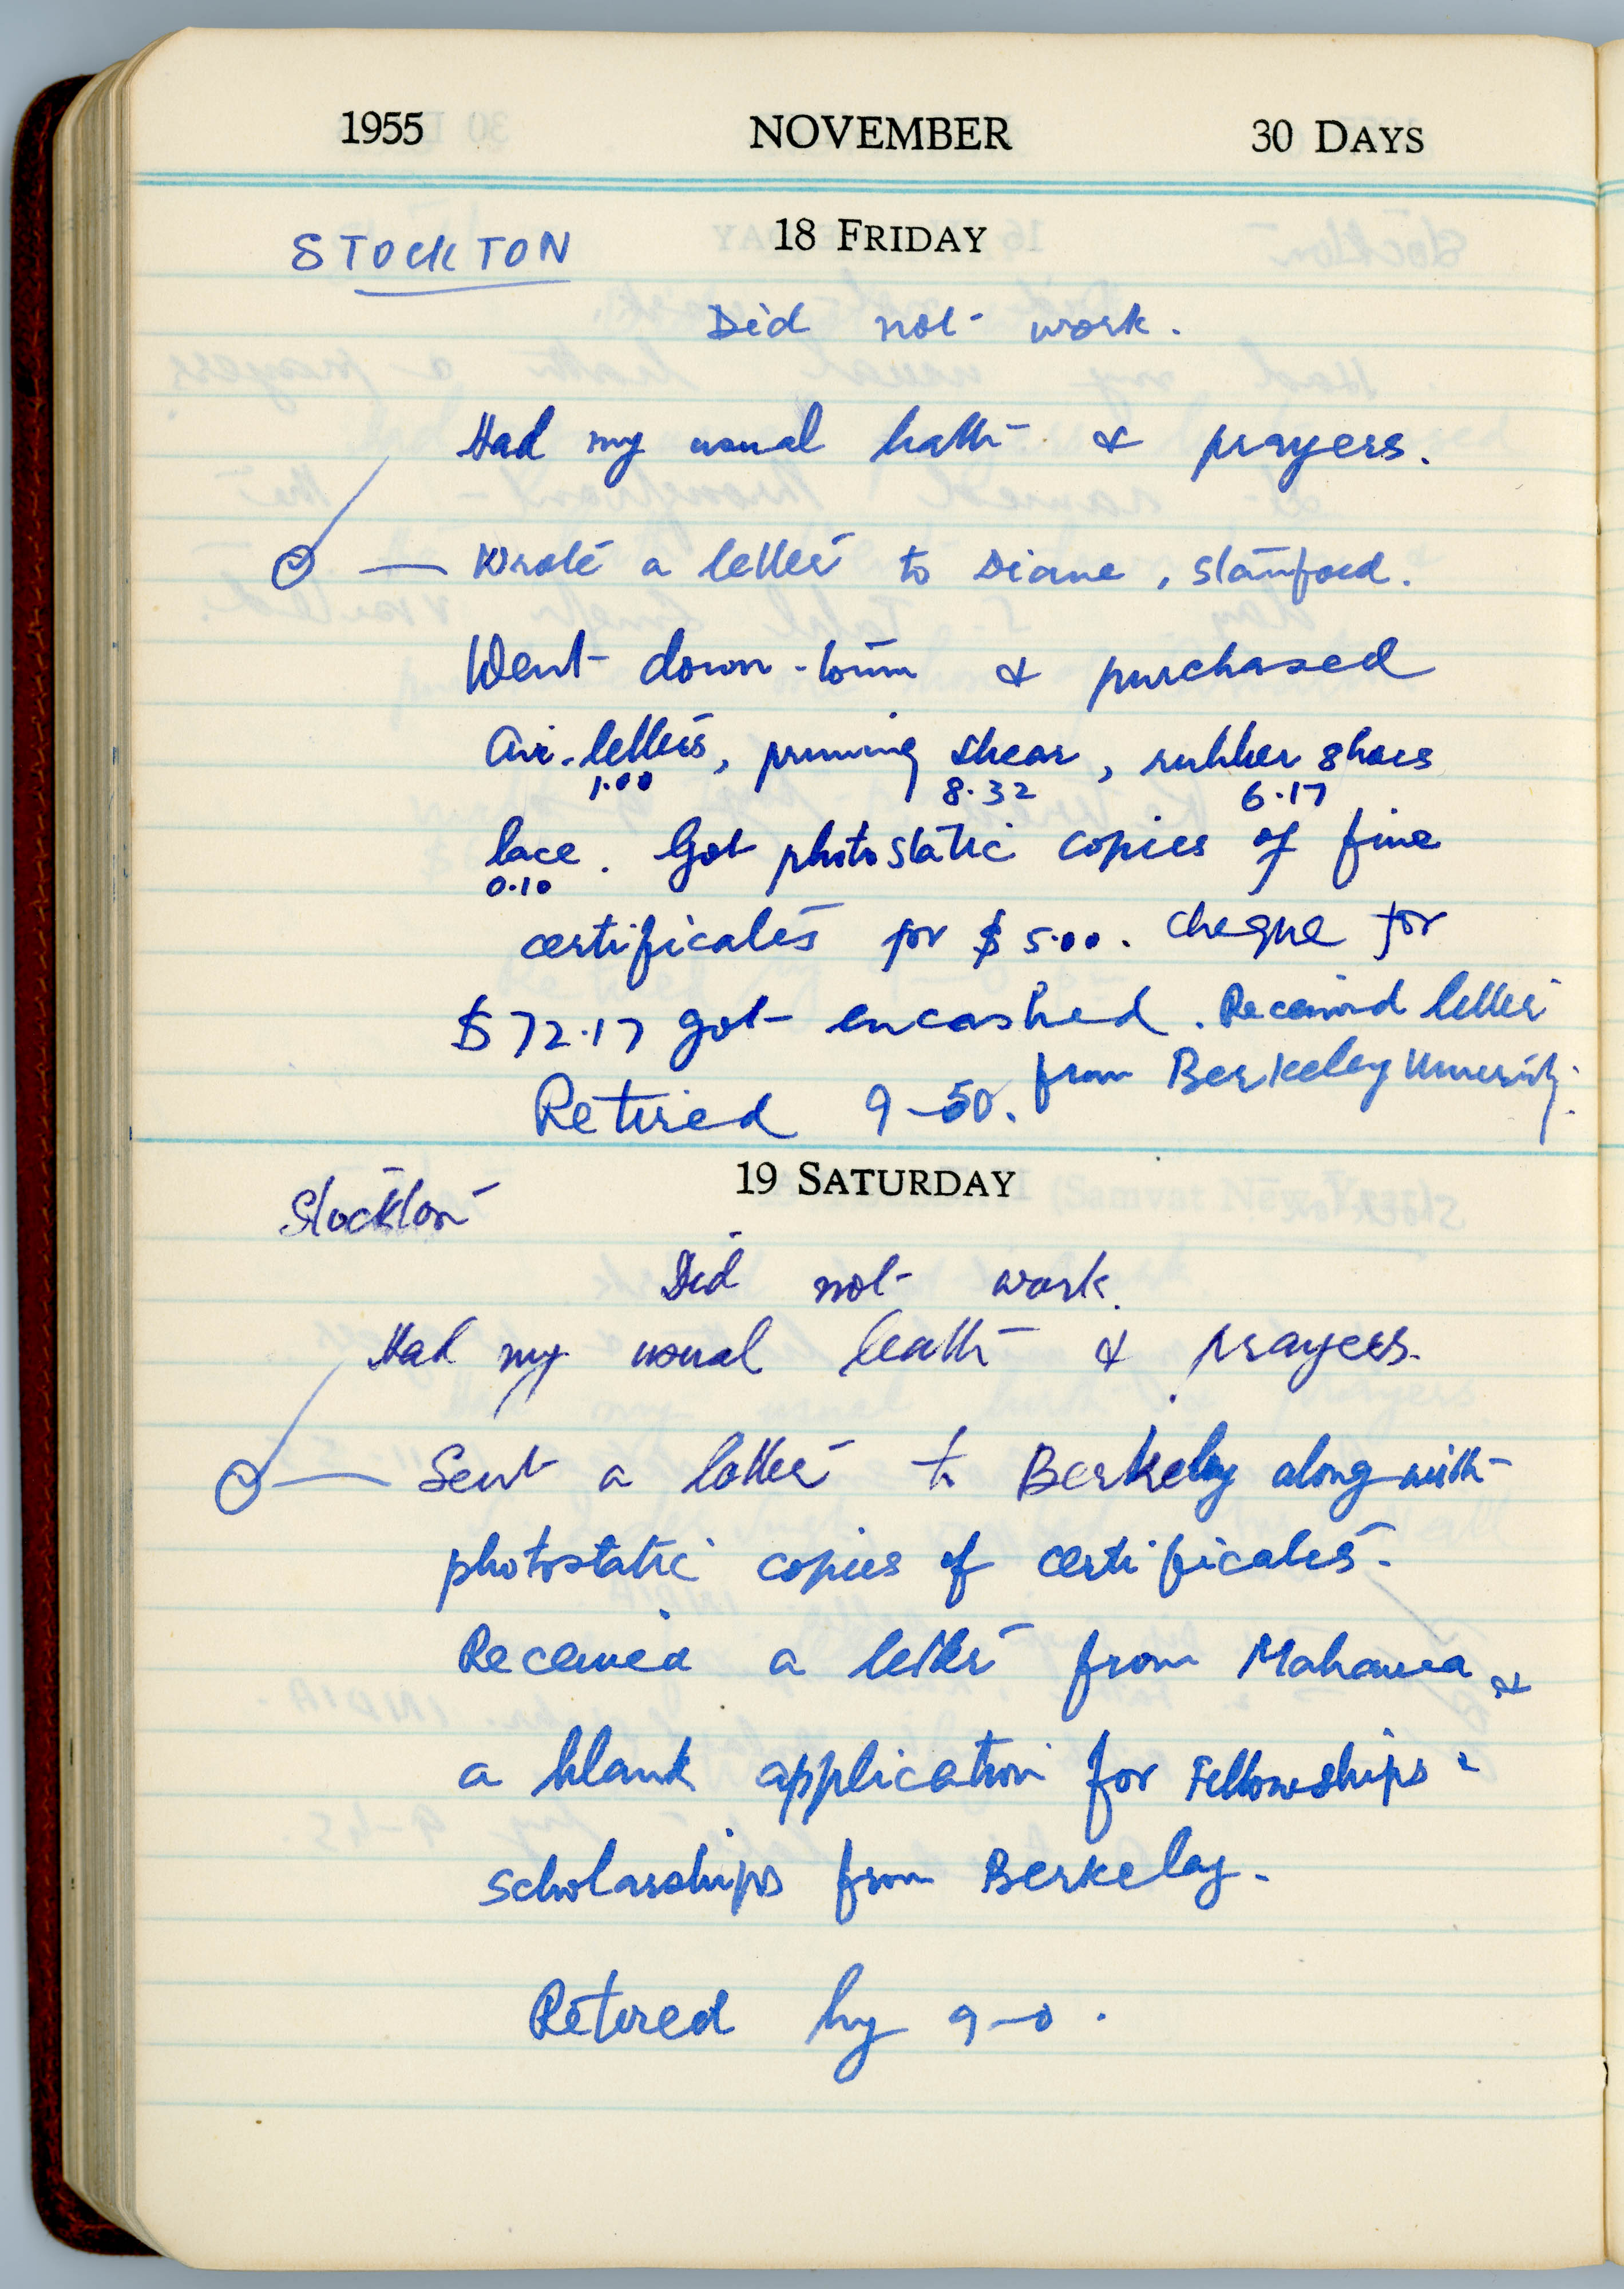 1955 NOVEMBER 30 DAYS
18 FRIDAY
STOCKTON
Did not work.
Had my usual bath & prayers.
Wrote a letter to Diane, Stanford.
Went down-town & purchased
Air-letters, pruning shear, rubber shoes
1.00 8.32 6.17
lace. Got photostatic copies of five
0.10
certificates for $5.00. Cheque for
$72.17 got encashed. Received letter
from Berkeley University.
Retired 9-50.
19 SATURDAY
Stockton
Did not work.
Had my usual bath & prayers.
Sent a letter to Berkeley along with
photostatic copies of certificates.
Received a letter from &
a blank application for Fellowships &
Scholarships from Berkeley.
Retired by 9-0.